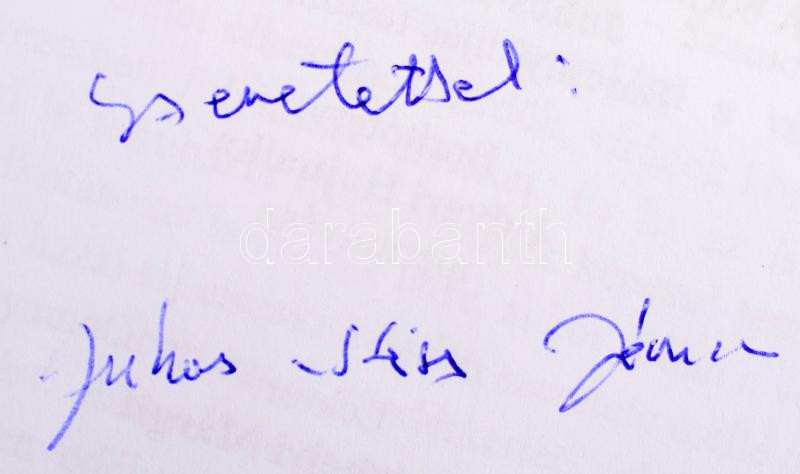 Szeretettel:
darabanth
Juhos Kiss János